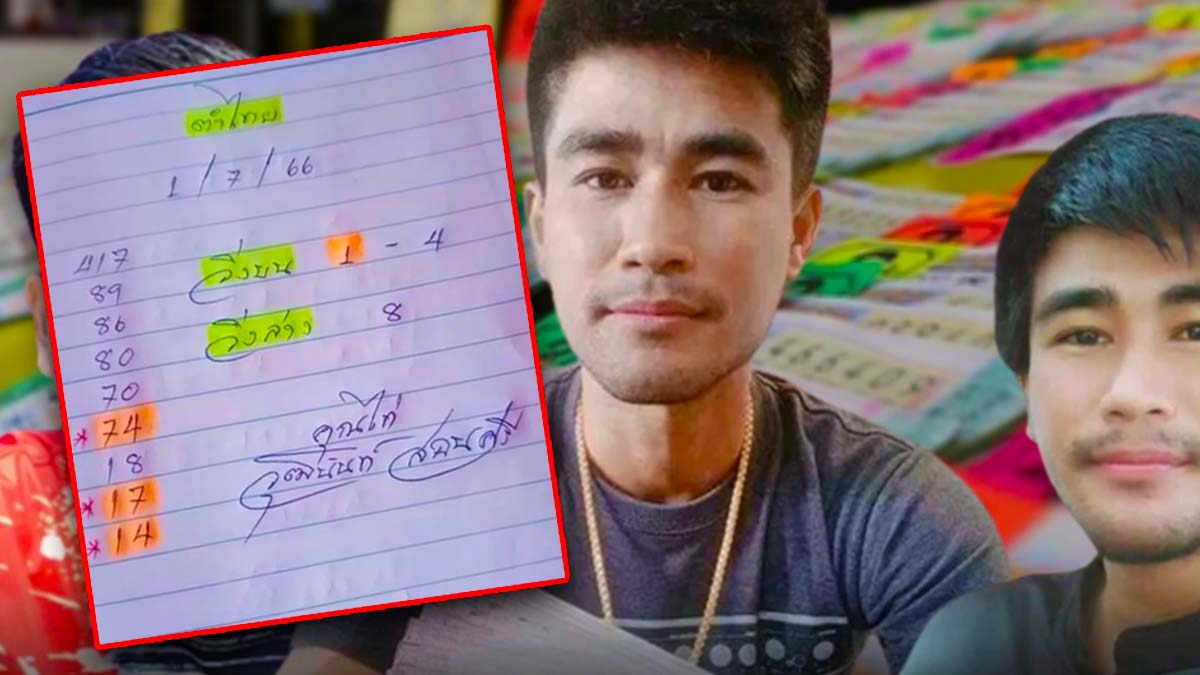 ตำไทย
1 / 7 / 66
417
89
86
80
70
* 74
18
* 17
* 14
วิ่งบน 1 - 4
วิ่งล่าง 8
วุฒินันท์